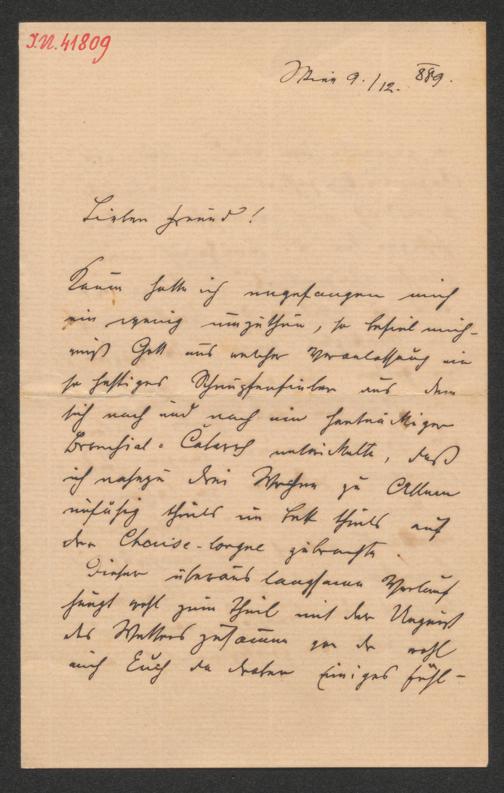 I.N. 41809
Wien 9./12. 889.
Lieber Freund!
Kaum hatte ich angefangen mich
ein wenig umzuthun, so befiel mich -
weiß Gott aus welcher Veranlassung ein
so heftiges Schnupfenfieber aus dem
sich nach und nach ein hartnäckiger
Bronchial-Catarrh entwickelte, daß
ich nahezu drei Wochen zu Allem
unfähig theils im Bett theils auf
der Chaise-longue zubrachte.
Dieser überaus langsame Verlauf
hängt wohl zum Theil mit der Ungunst
des Wetters zusammen von der wohl
auch Euch da draßen Einiges fühl-